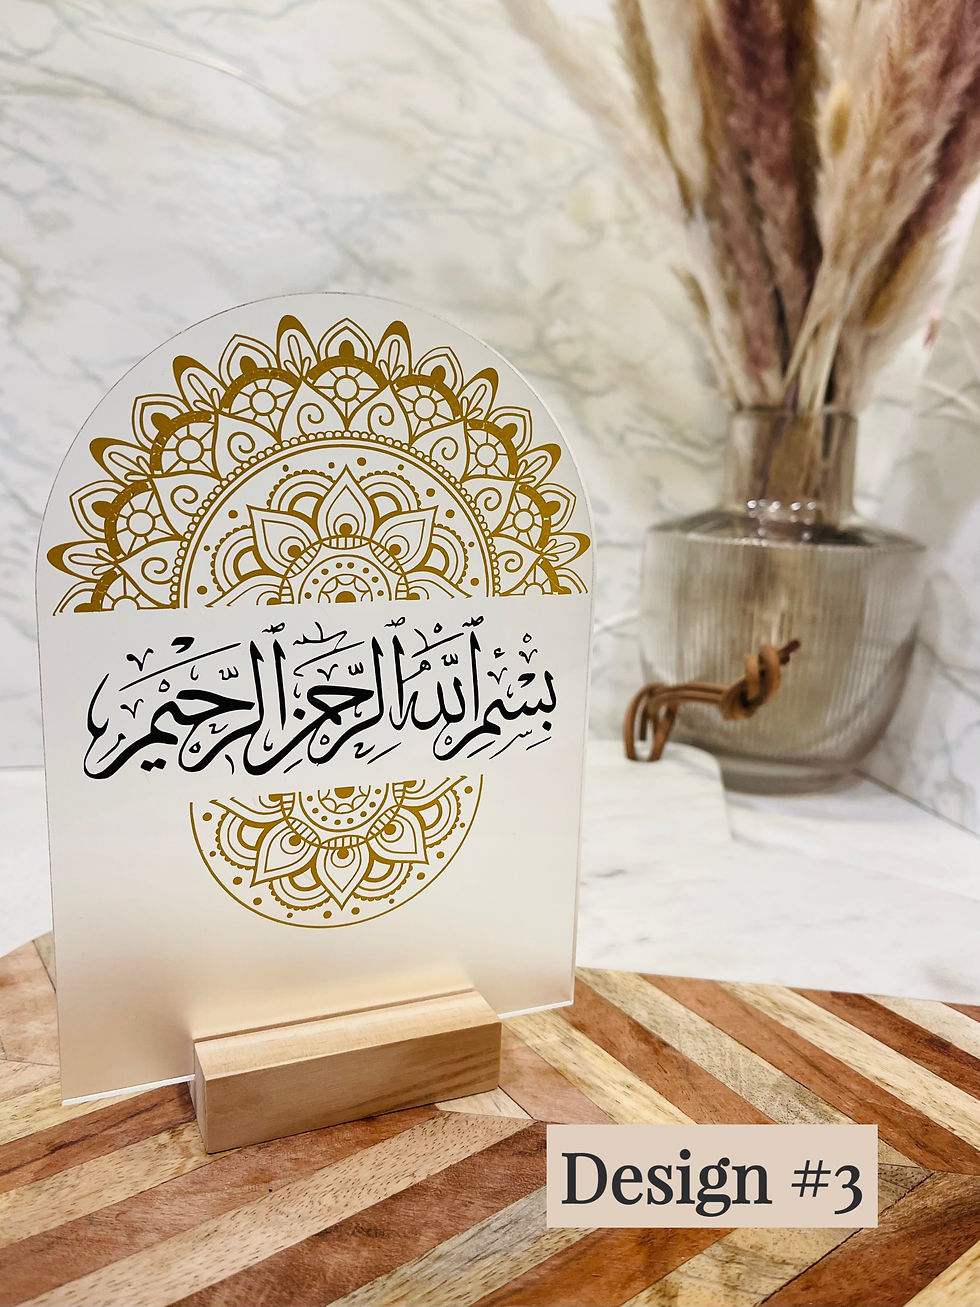 بِسْمِ ٱللَّهِ ٱلرَّحْمَٰنِ ٱلرَّحِيمِ
Design #3